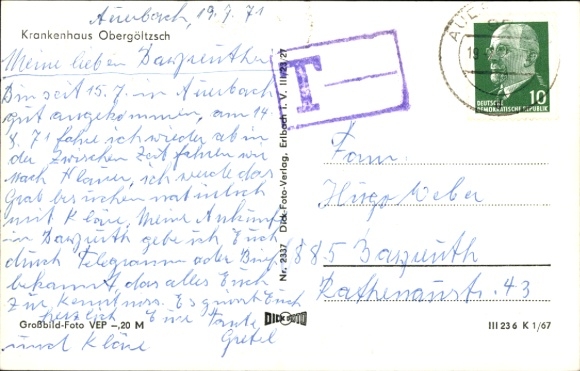 Auerbach, 19.7.71
Krankenhaus Obergöltzsch
Meine lieben Bayreuther
Bin seit 15.7. in Auerbach
gut angekommen, am 14.
8. 71 fahre ich wieder ab in
der Zwischen Zeit fahren wir
nach Plauen, ich werde das
Grab besuchen natürlich
mit Kläre. Meine Ankunft
in Bayreuth gebe ich Euch
durch Telegramm oder Brief
bekannt, das alles Euch
zur Kenntniss. Es grüsst Euch
herzlich Eure Tante
Gretel
und Kläre
Großbild-Foto VEP –,20 M
Nr. 2337 Dick-Foto-Verlag, Erlbach i. V. III/23/27
DICK FOTO
T
AUE
19
DEUTSCHE
DEMOKRATISCHE REPUBLIK
10
Fam.
Hugo Weber
885 Bayreuth
Rathenaustr. 43
III 23 6 K 1/67